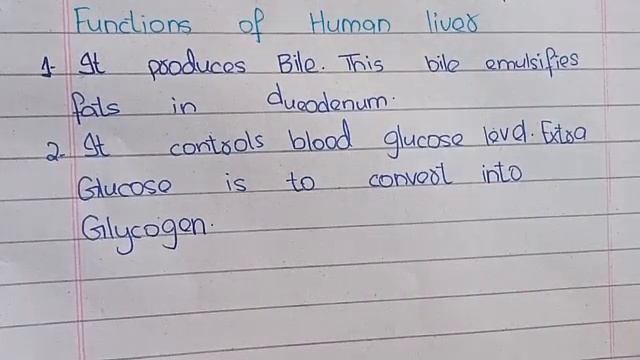 Functions of Human liver
1. It produces Bile. This bile emulsifies
fats in dueodenum.
2. It controls blood glucose level. Extra
Glucose is to convert into
Glycogen.